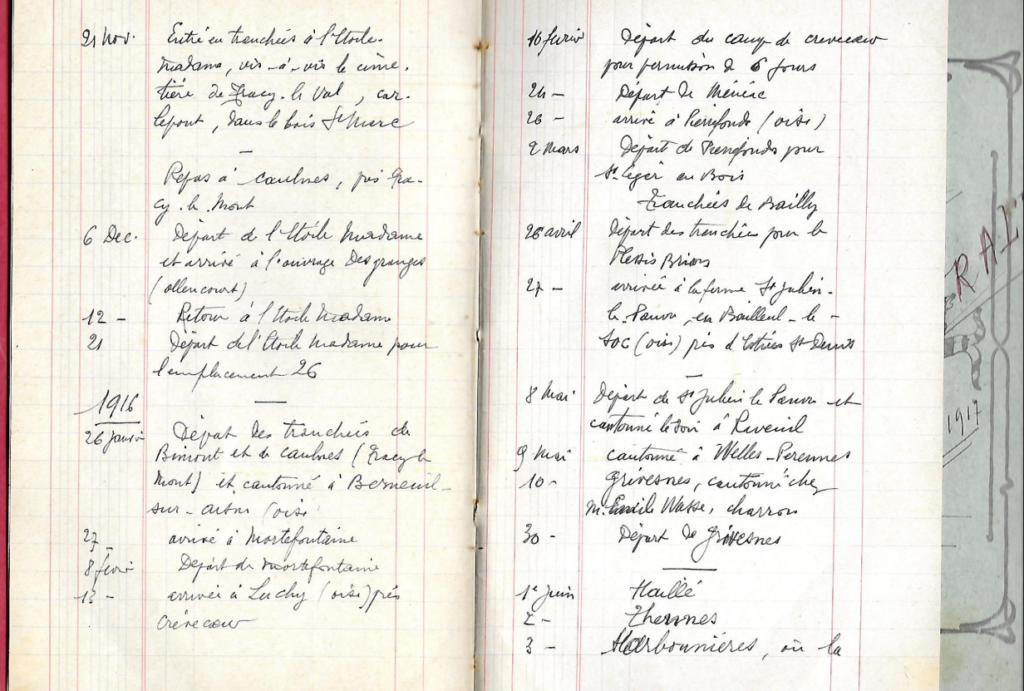 21 Nov. Entré en tranchées à l'Etoile
Madame, vis-à-vis le cime-
tière de Tracy-le Val, car-
lepont, dans le bois St Marc
—
Repos à Caulnes, près Tra-
cy-le-Mont
6 Dec. Départ de l'Etoile Madame
et arrivé à l'ouvrage Desgranges
(ollencourt)
12 – Retour à l'Etoile Madame
21 Départ de l'Etoile Madame pour
l'emplacement 26
—
1916
26 janvier Départ des tranchées de
Bimont et de Caulnes (Tracy-le
Mont) et cantonné à Berneuil-
sur-aisne (oise)
27 – arrivé à Mortefontaine
8 février Départ de Mortefontaine
13 – arrivée à Luchy (oise) près
Crévecoeur
16 février Départ du camp de crevecoeur
pour permission de 6 jours
24 – Départ de Ménéac
26 – arrivé à Pierrefonds (oise)
2 Mars Départ de Pierrefonds pour
St Léger en Bois
Tranchées de Bailly
26 avril Départ des tranchées pour le
Plessis Brion
27 – arrivée à la ferme St Julien-
le-Pauvre, en Bailleul-le-
Soc (oise) près d'Estrées St Denis
—
8 Mai Départ de St Julien le Pauvre et
cantonné le soir à Raveuil
9 Mai cantonné à Welles-Perennes
10 – Grivesnes, cantonné chez
M. Emile Wasse, charron
30 – Départ de Grivesnes
—
1er Juin Haillé
2 – Thennes
3 – Harbonnières, où la
RAI
1917